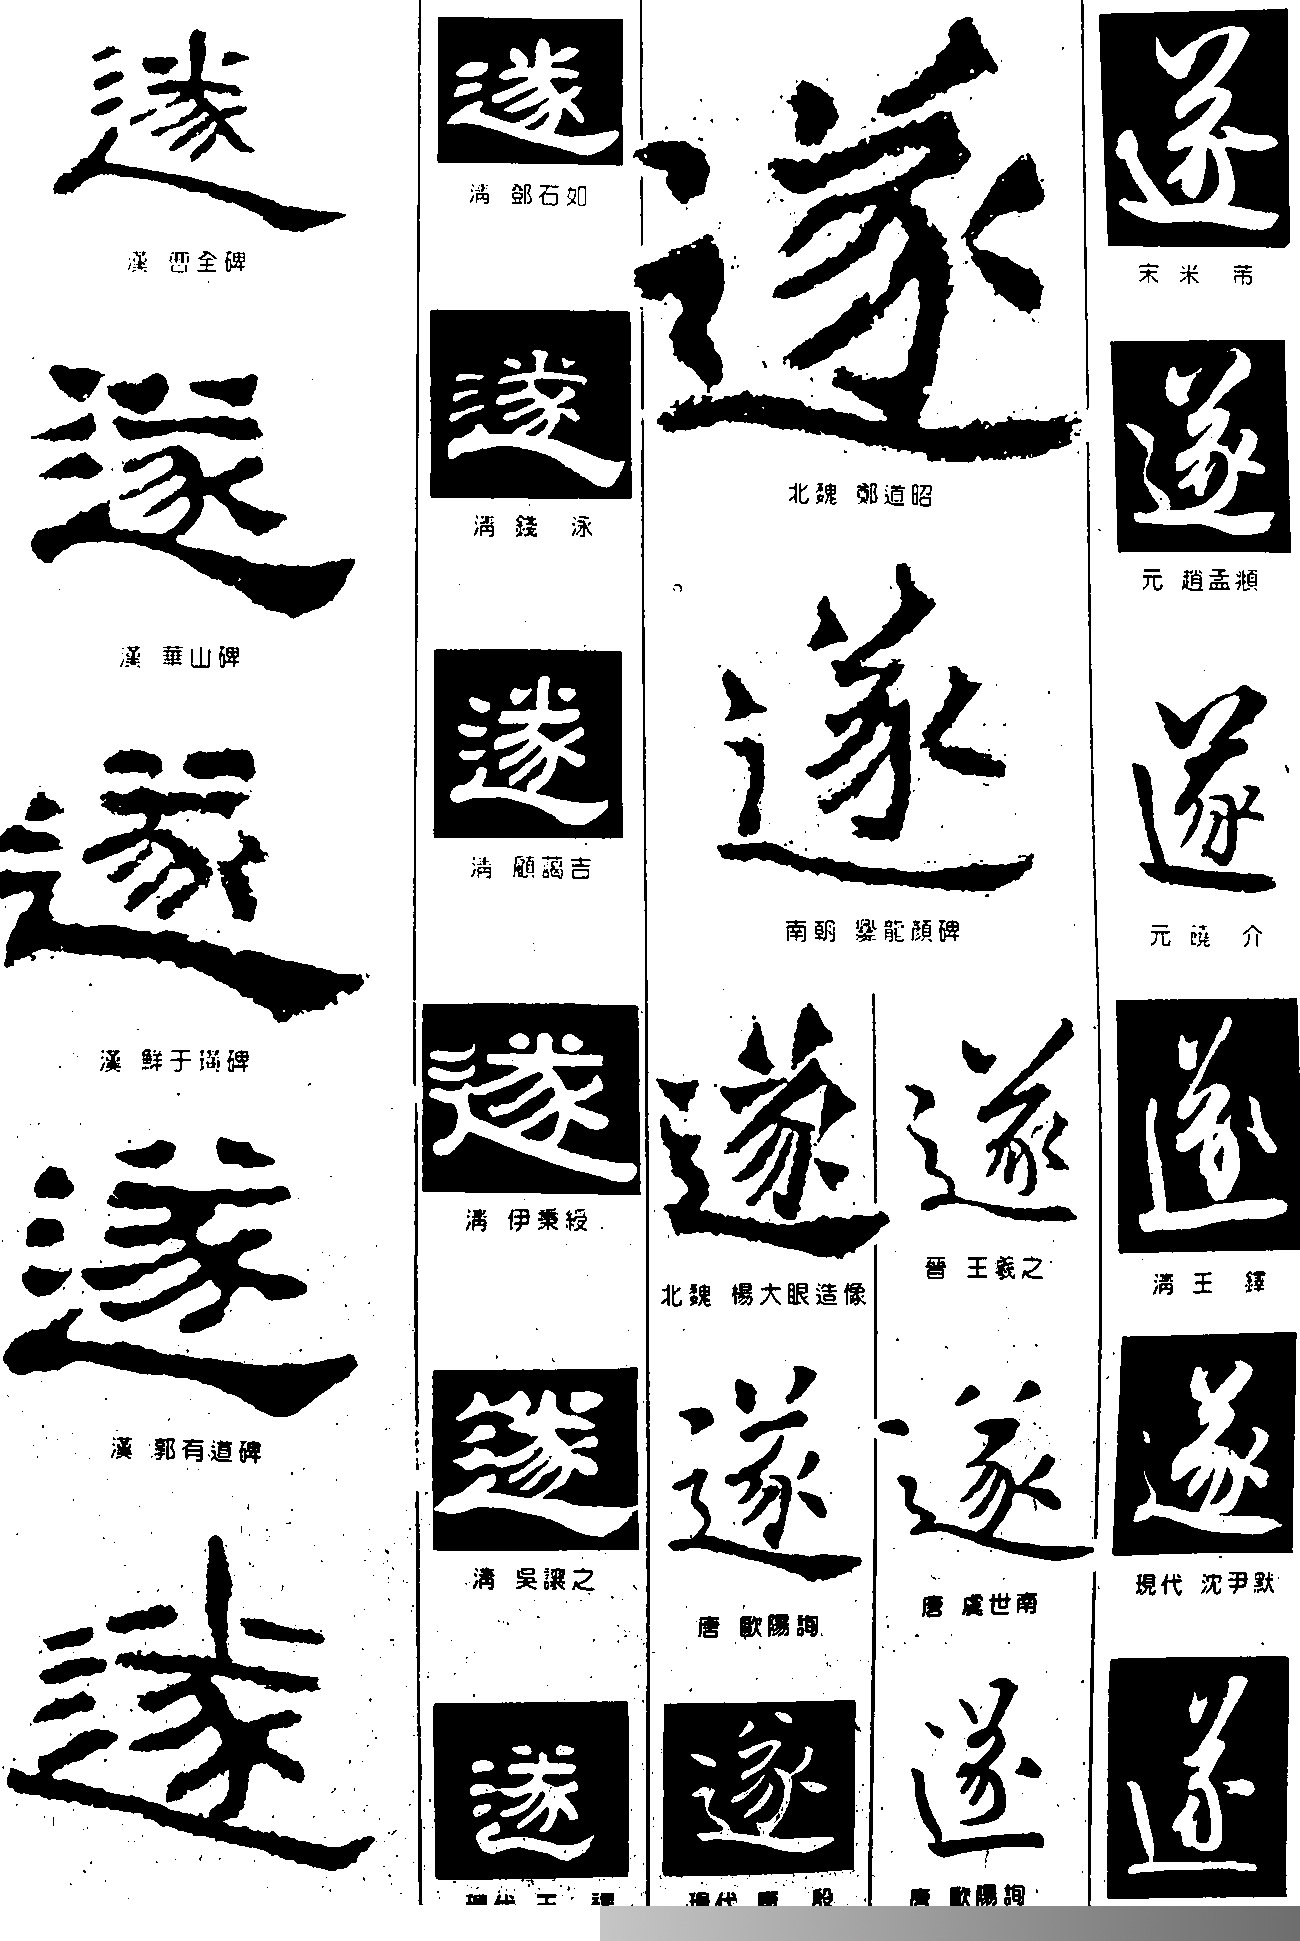 遂
漢 曹全碑
遂
漢 華山碑
遂
漢 鮮于璜碑
遂
漢 郭有道碑
遂
遂
清 鄧石如
遂
清 錢 泳
遂
清 顧藹吉
遂
清 伊秉綬
遂
清 吳讓之
遂
現代 王 禔
遂
北魏 鄭道昭
遂
南朝 爨龍顏碑
遂
北魏 楊大眼造像
遂
唐 歐陽詢
遂
現代
遂
晉 王羲之
遂
唐 虞世南
遂
唐 歐陽詢
遂
宋 米 芾
遂
元 趙孟頫
遂
元 饒 介
遂
清 王 鐸
遂
現代 沈尹默
遂